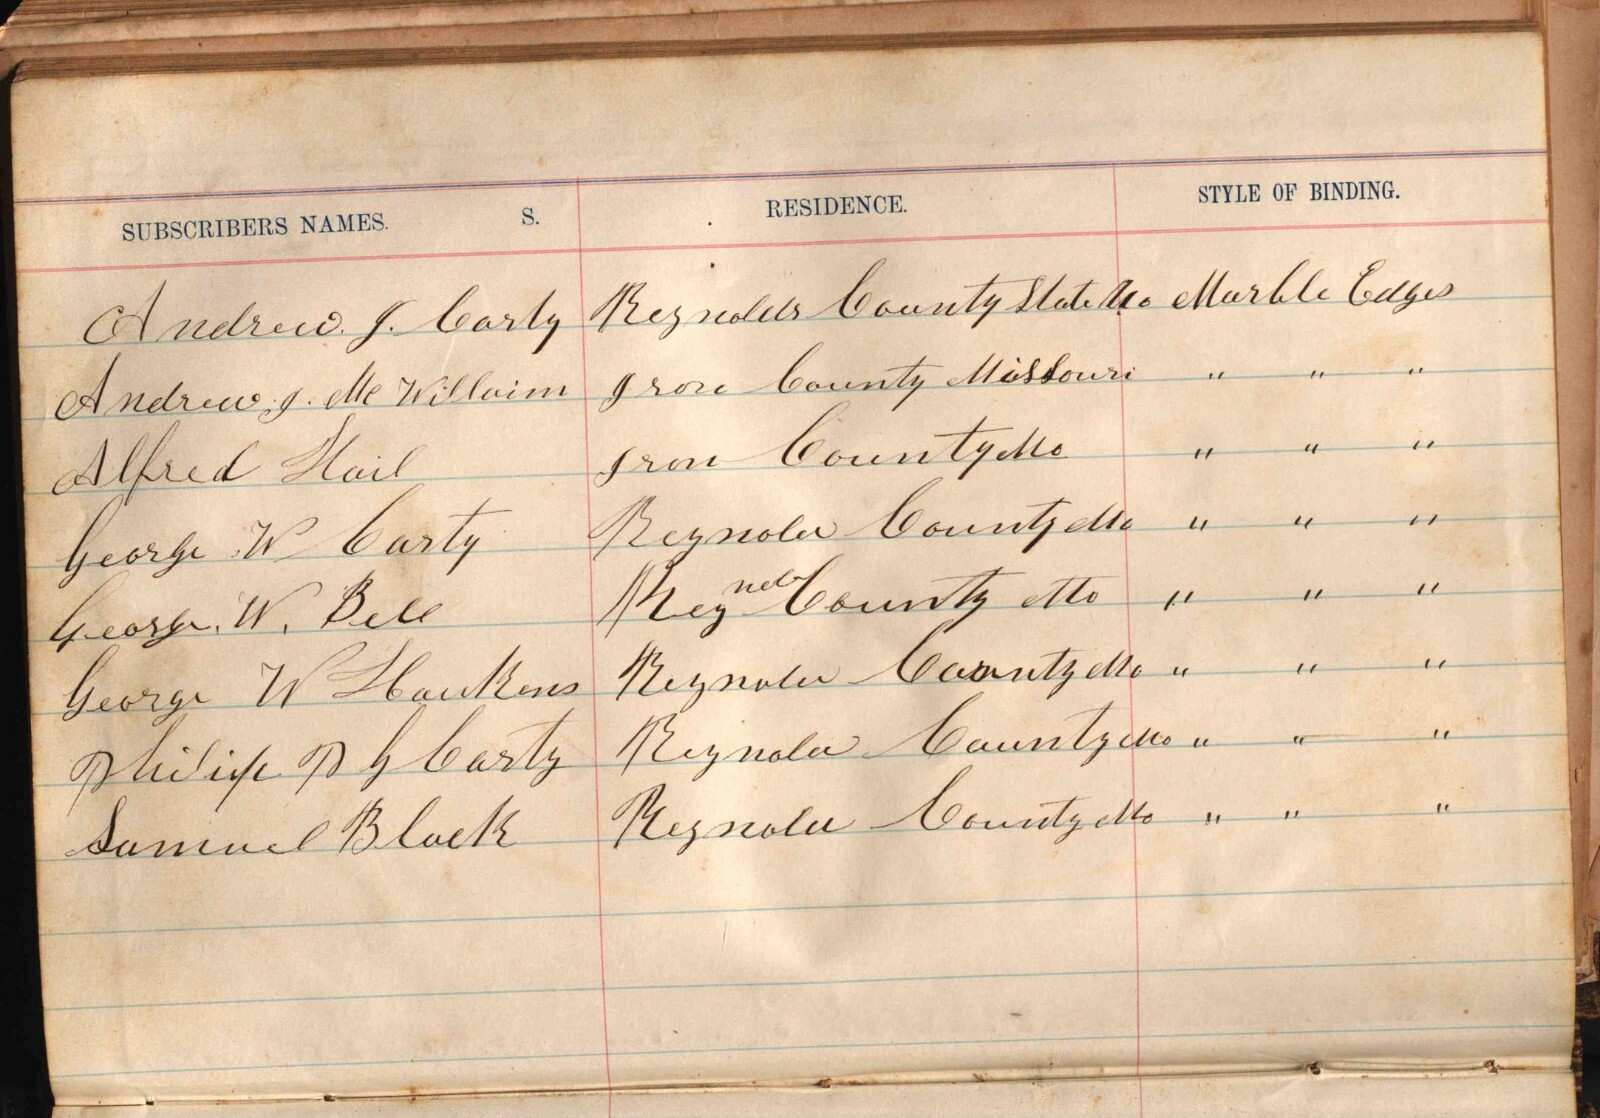 SUBSCRIBERS NAMES. S. RESIDENCE. STYLE OF BINDING.
Andrew. J. Carty Reynolds County State Mo Marble Edges
Andrew. J. Mc Willaim Iron County Missouri " " "
Alfred Hail Iron County Mo " " "
George W Carty Reynolds County Mo " " "
George. W. Bell Rey nolds County Mo " " "
George W Haukens Reynolds County Mo " " "
Philip P G Carty Reynolds County Mo " " "
Samuel Black Reynolds County Mo " " "